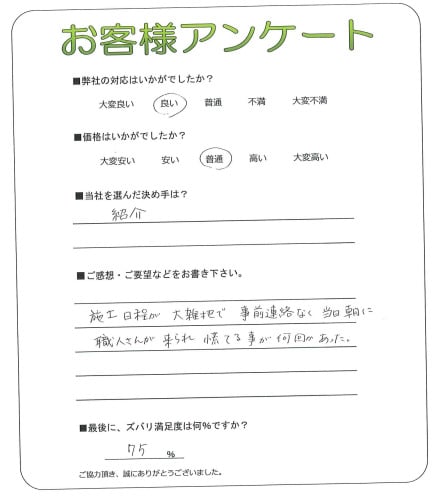 お客様アンケート
■弊社の対応はいかがでしたか？
大変良い 良い 普通 不満 大変不満
■価格はいかがでしたか？
大変安い 安い 普通 高い 大変高い
■当社を選んだ決め手は？
紹介
■ご感想・ご要望などをお書き下さい。
施工日程が 大雑把で 事前連絡なく 当日朝に
職人さんが来られ 慌てる事が何回かあった。
■最後に、ズバリ満足度は何％ですか？
75 %
ご協力頂き、誠にありがとうございました。